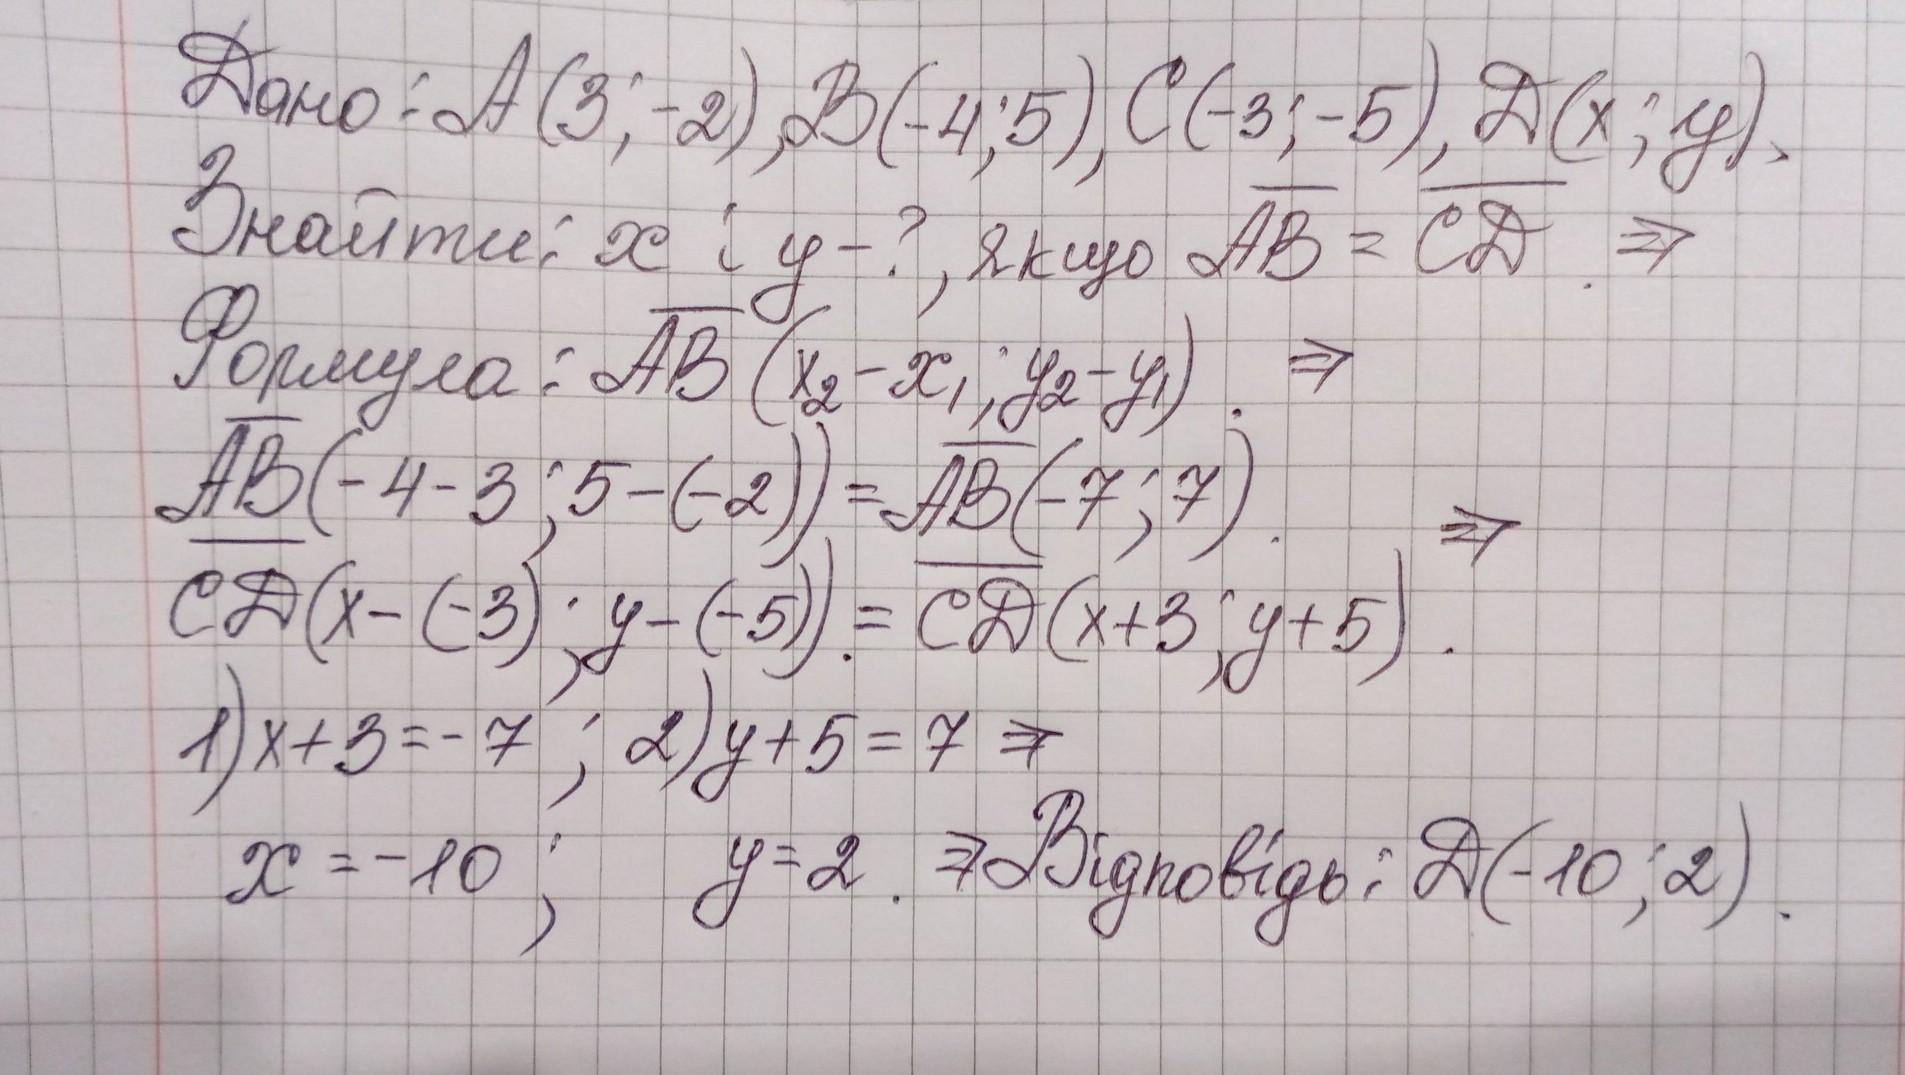 Дано: A(3;-2), B(-4;5), C(-3;-5), D(x;y),
Знайти: x і y-?, якщо A̅B̅ = C̅D̅. ⇒
Формула: A̅B̅(x₂-x₁; y₂-y₁). ⇒
A̅B̅(-4-3; 5-(-2)) = A̅B̅(-7; 7). ⇒
C̅D̅(x-(-3); y-(-5)). = C̅D̅(x+3; y+5).
1) x+3=-7; 2) y+5=7 ⇒
x=-10; y=2. ⇒ Відповідь: D(-10;2).